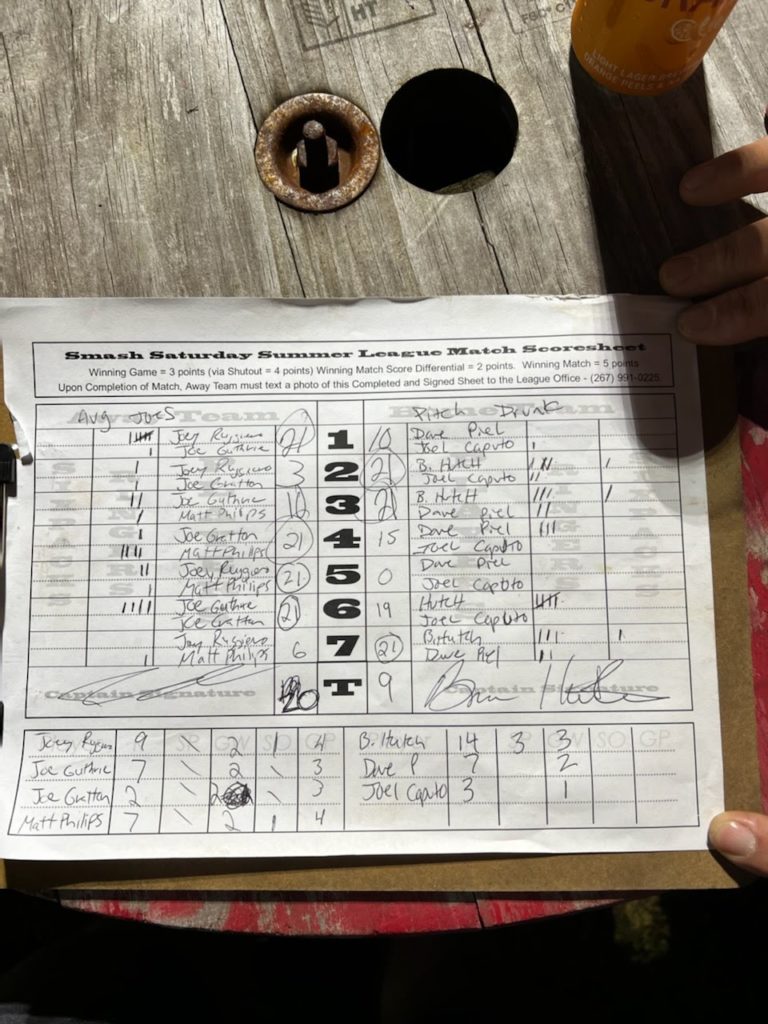 HT
LIGHT LAGER
ORANGE PEELS &
Smash Saturday Summer League Match Scoresheet
Winning Game = 3 points (via Shutout = 4 points) Winning Match Score Differential = 2 points. Winning Match = 5 points
Upon Completion of Match, Away Team must text a photo of this Completed and Signed Sheet to the League Office - (267) 991-0225.
Avg Joes Pitch Drunk
Joey Ruggiero 21 1 10 Dave Piel
Joe Guthrie Joel Caputo
Joey Ruggiero 3 2 21 B. Hutch
Joe Gratton Joel Caputo
Joe Guthrie 3 21 B. Hutch
Matt Philips Dave Piel
Joe Gratton 21 4 15 Dave Piel
Matt Phillips Joel Caputo
Joey Ruggiero 21 5 0 Dave Piel
Matt Philips Joel Caputo
Joe Guthrie 21 6 19 Hutch
Joe Gratton Joel Caputo
Joey Ruggiero 6 7 21 B. Hutch
Matt Philips Dave Piel
Captain Signature 20 T 9 Captain Signature
Joey Ruggiero 9 \ 2 1 4 B. Hutch 14 3 3 SO GP
Joe Guthrie 7 \ 2 \ 3 Dave P 7 2
Joe Gratton 2 \ 2 \ 3 Joel Caputo 3 1
Matt Philips 7 \ 2 1 4